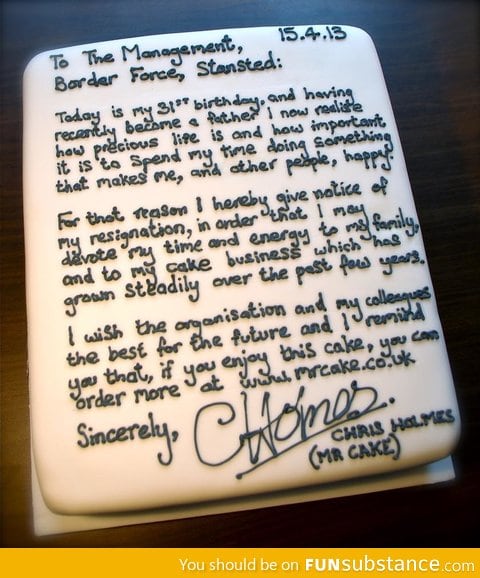 15.4.13
To The Management,
Border Force, Stansted:
Today is my 31st birthday, and having
recently become a father I now realise
how precious life is and how important
it is to spend my time doing something
that makes me, and other people, happy.
For that reason I hereby give notice of
my resignation, in order that I may
devote my time and energy to my family,
and to my cake business which has
grown steadily over the past few years.
I wish the organisation and my colleagues
the best for the future and I remind
you that, if you enjoy this cake, you can
order more at www.mrcake.co.uk
Sincerely,
CHolmes.
CHRIS HOLMES
(MR CAKE)
You should be on FUNsubstance.com